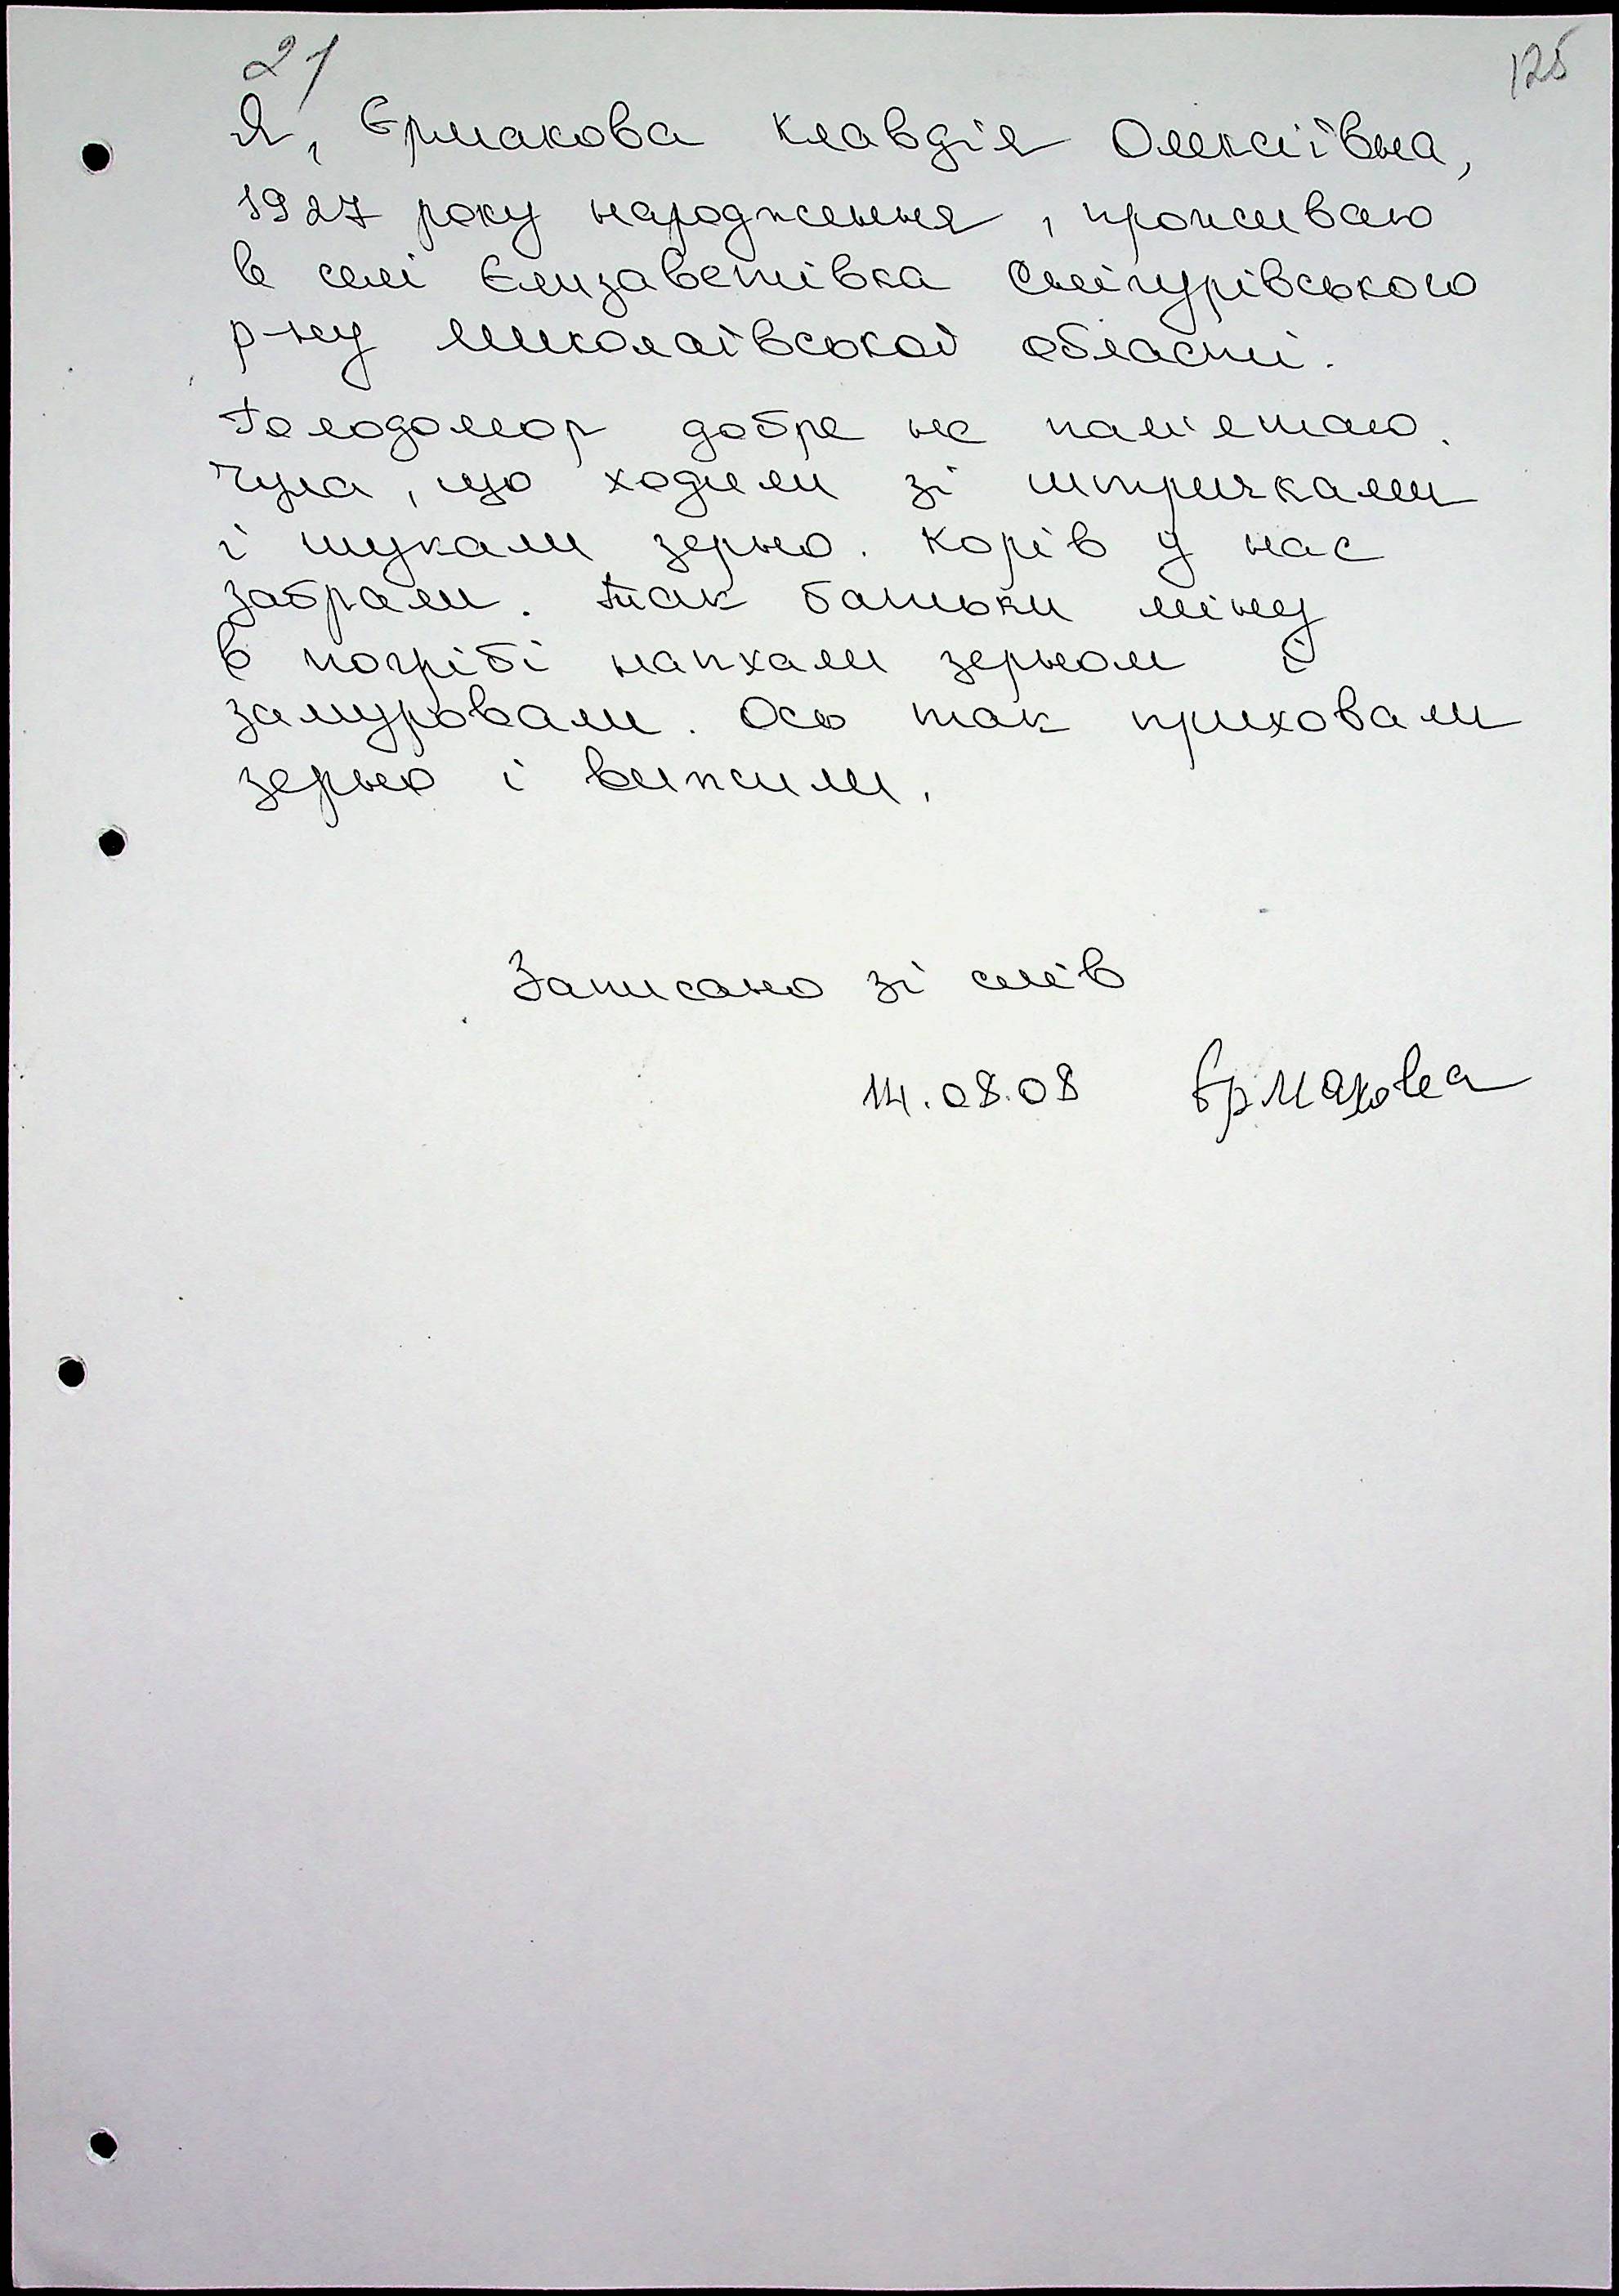 21
125
Я, Єрмакова Клавдія Олексіївна,
1927 року народження, проживаю
в селі Єлизаветівка Снігурівського
р-ну Миколаївської області.
Голодомор добре не пам'ятаю.
Чула, що ходили зі штричками
і шукали зерно. Корів у нас
забрали. Так батьки міну
в погрібі напхали зерном і
замуровали. Ось так приховали
зерно і вижили.
Записано зі слів
14.08.08 Єрмакова